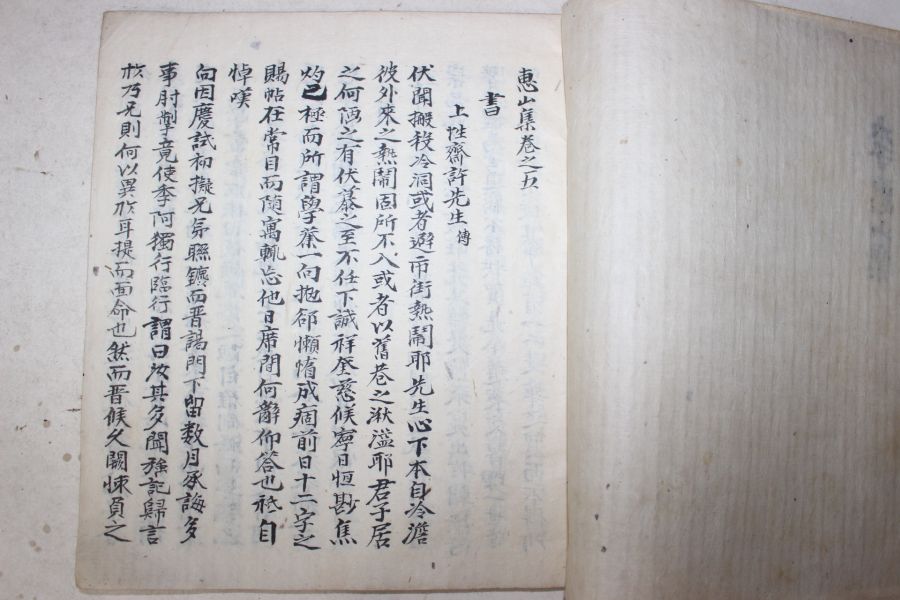 惠山集卷之五
書
上性齋許先生傳
伏聞搬移冷洞或者避市街熱鬧耶先生心下本自冷澹
彼外來之熱鬧固所不入或者以舊巷之湫溢耶君子居
之何陋之有伏慕之至不任下誠祥登慈候寧日恒尠焦
灼已極而所謂學業一向抛郤懶惰成痼前日十二字之
賜帖在常目而隨寓輒忘他日席間何辭仰答也秪自
悼嘆
向因慶試初擬兄弟聯鑣而晋謁門下留数月承誨多
事肘掣竟使季阿獨行臨行謂曰汝其多聞强記歸言
於乃兄則何以異於耳提而面命也然而晋候久闕悚負之